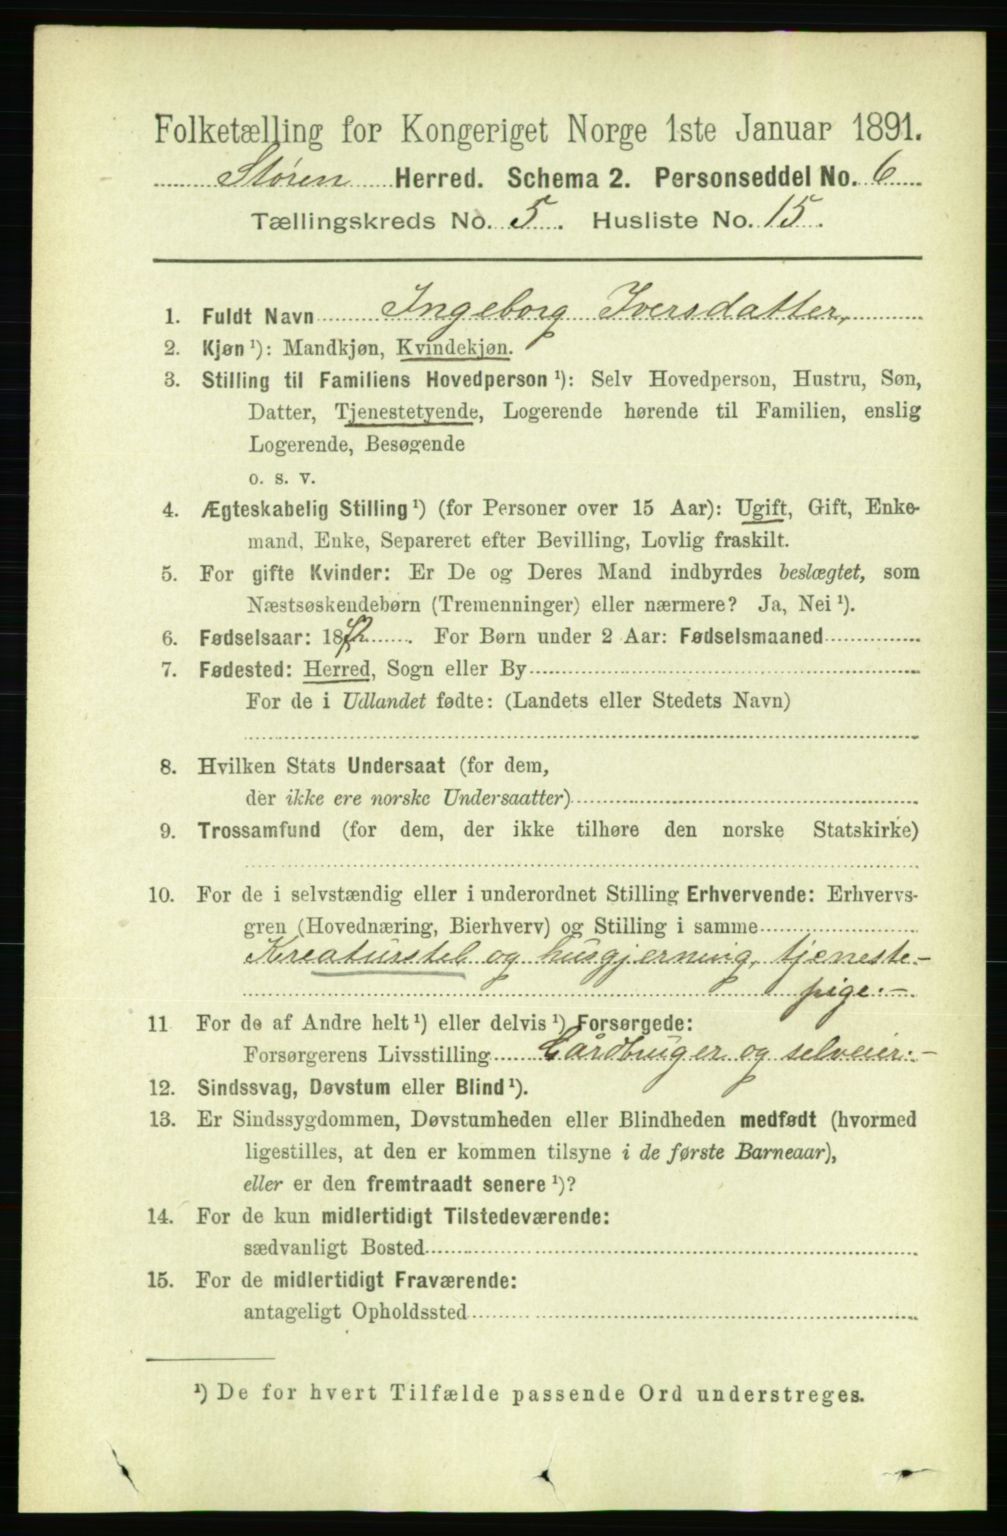 Folketælling for Kongeriget Norge 1ste Januar 1891.
Støren Herred. Schema 2. Personseddel No. 6
Tællingskreds No. 5. Husliste No. 15.
1. Fuldt Navn Ingeborg Iversdatter,
2. Kjøn ¹): Mandkjøn, Kvindekjøn.
3. Stilling til Familiens Hovedperson ¹): Selv Hovedperson, Hustru, Søn,
Datter, Tjenestetyende, Logerende hørende til Familien, enslig
Logerende, Besøgende
o. s. v.
4. Ægteskabelig Stilling ¹) (for Personer over 15 Aar): Ugift, Gift, Enke-
mand, Enke, Separeret efter Bevilling, Lovlig fraskilt.
5. For gifte Kvinder: Er De og Deres Mand indbyrdes beslægtet, som
Næstsøskendebørn (Tremenninger) eller nærmere? Ja, Nei ¹).
6. Fødselsaar: 18 . For Børn under 2 Aar: Fødselsmaaned
7. Fødested: Herred, Sogn eller By
For de i Udlandet fødte: (Landets eller Stedets Navn)
8. Hvilken Stats Undersaat (for dem,
der ikke ere norske Undersaatter)
9. Trossamfund (for dem, der ikke tilhøre den norske Statskirke)
10. For de i selvstændig eller i underordnet Stilling Erhvervende: Erhvervs-
gren (Hovednæring, Bierhverv) og Stilling i samme
Kreaturstel og husgjerning, tjeneste-
pige.-
11 For de af Andre helt ¹) eller delvis ¹) Forsørgede:
Forsørgerens Livsstilling Gårdbruger og selveier.-
12. Sindssvag, Døvstum eller Blind ¹).
13. Er Sindssygdommen, Døvstumheden eller Blindheden medfødt (hvormed
ligestilles, at den er kommen tilsyne i de første Barneaar),
eller er den fremtraadt senere ¹)?
14. For de kun midlertidigt Tilstedeværende:
sædvanligt Bosted
15. For de midlertidigt Fraværende:
antageligt Opholdssted
¹) De for hvert Tilfælde passende Ord understreges.